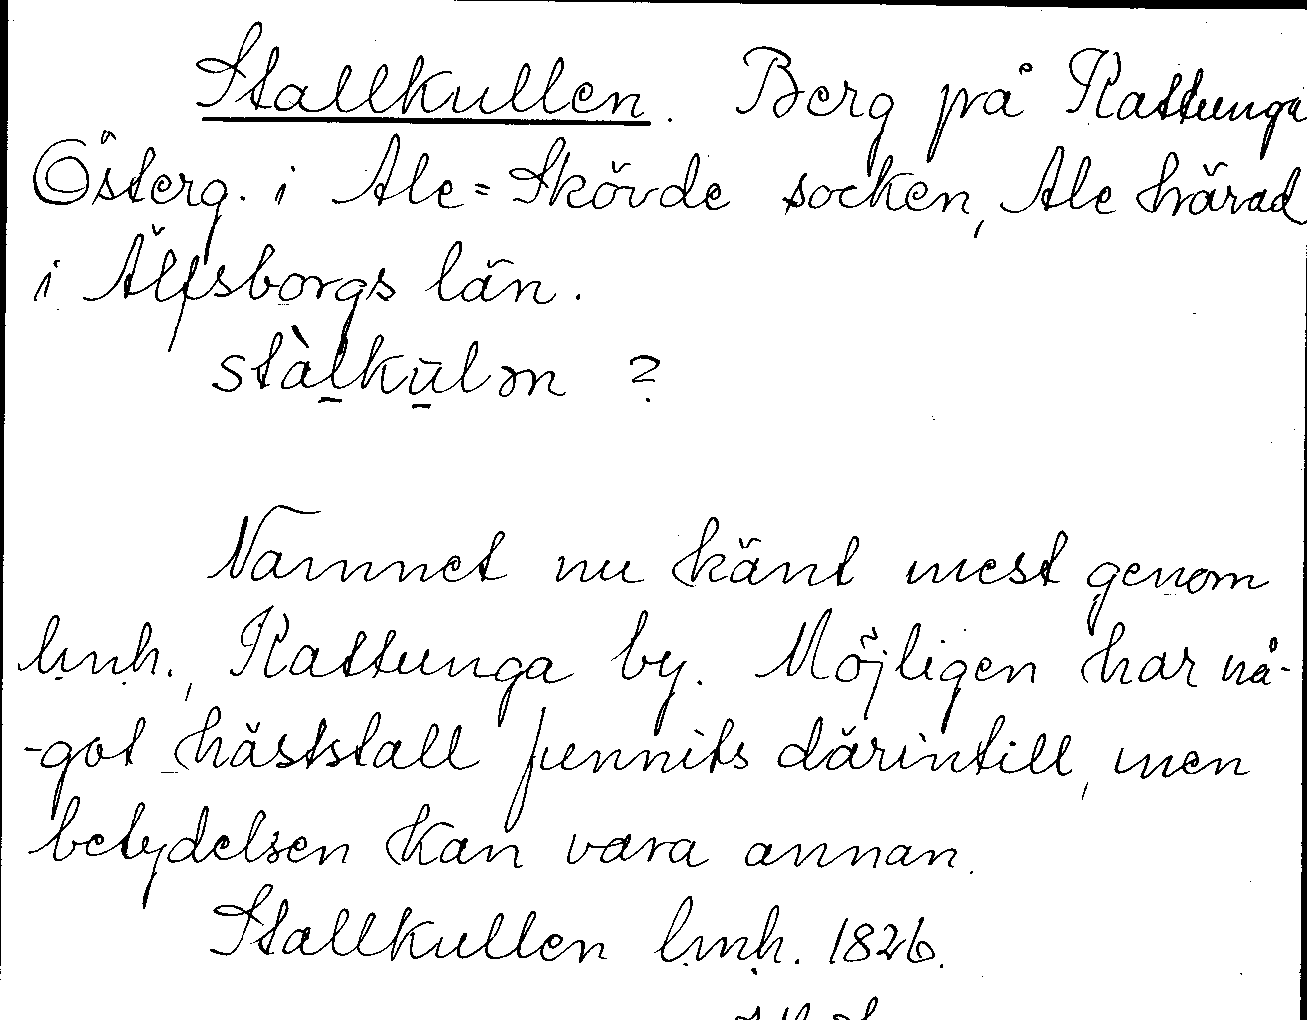 Stallkullen. Berg på Rattunga
Österg. i Ale=Skövde socken, Ale härad
i Älfsborgs län.
stàlkūlən ?
Namnet nu känt mest genom
lmh., Rattunga by. Möjligen har nå-
-got häststall funnits därintill, men
betydelsen kan vara annan.
Stallkullen lmh. 1826.